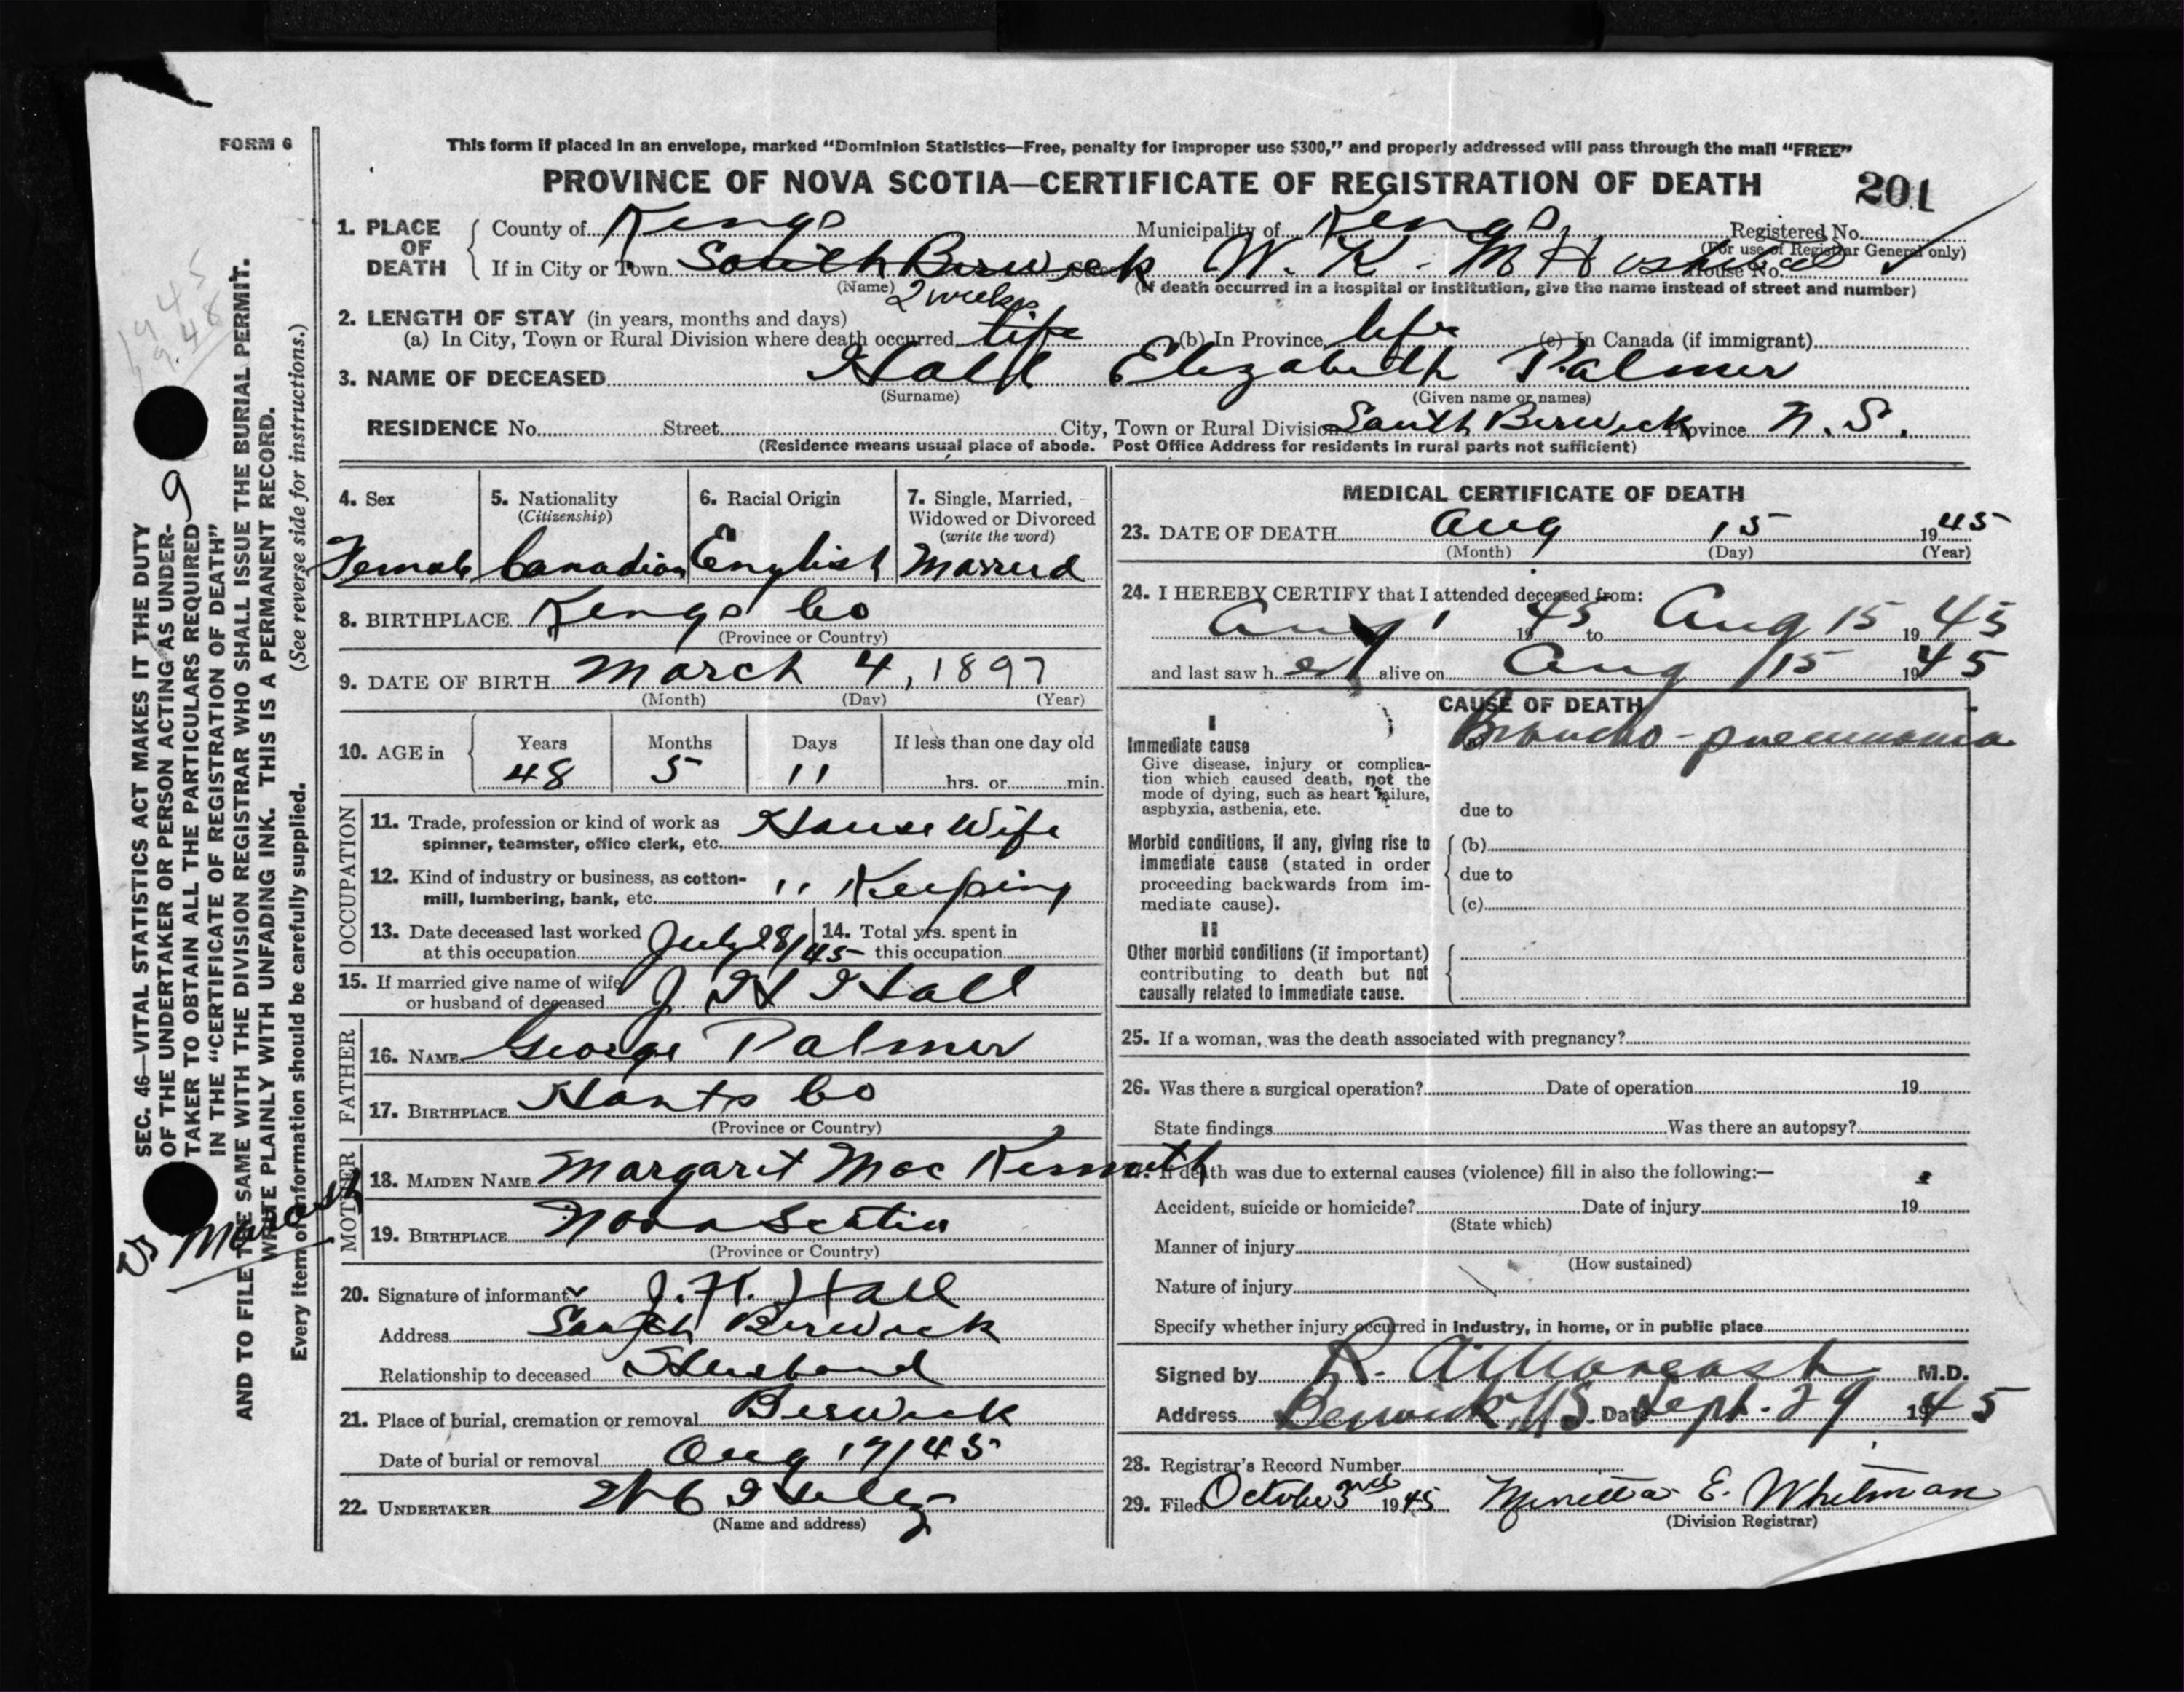 FORM 6
This form if placed in an envelope, marked "Dominion Statistics—Free, penalty for improper use $300," and properly addressed will pass through the mail "FREE"
PROVINCE OF NOVA SCOTIA—CERTIFICATE OF REGISTRATION OF DEATH
201
1. PLACE OF DEATH
County of Kings Municipality of Kings Registered No.
(For use of Registrar General only)
If in City or Town South Berwick Street W. K. M Hospital House No.
(Name) (If death occurred in a hospital or institution, give the name instead of street and number)
2 weeks
2. LENGTH OF STAY (in years, months and days)
(a) In City, Town or Rural Division where death occurred life (b) In Province life (c) In Canada (if immigrant)
3. NAME OF DECEASED Hall Elizabeth Palmer
(Surname) (Given name or names)
RESIDENCE No. Street City, Town or Rural Division South Berwick Province N.S.
(Residence means usual place of abode. Post Office Address for residents in rural parts not sufficient)
4. Sex
Female
5. Nationality
(Citizenship)
Canadian
6. Racial Origin
English
7. Single, Married,
Widowed or Divorced
(write the word)
Married
8. BIRTHPLACE Kings Co
(Province or Country)
9. DATE OF BIRTH March 4, 1897
(Month) (Day) (Year)
10. AGE in
Years Months Days If less than one day old
48 5 11 hrs. or min.
OCCUPATION
11. Trade, profession or kind of work as
spinner, teamster, office clerk, etc. House Wife
12. Kind of industry or business, as cotton-
mill, lumbering, bank, etc. " Keeping
13. Date deceased last worked
at this occupation July 28/45
14. Total yrs. spent in
this occupation
15. If married give name of wife
or husband of deceased J H Hall
FATHER
16. NAME George Palmer
17. BIRTHPLACE Hants Co
(Province or Country)
MOTHER
18. MAIDEN NAME Margaret Mac
19. BIRTHPLACE Nova Scotia
(Province or Country)
20. Signature of informant J. H. Hall
Address South Berwick
Relationship to deceased Husband
21. Place of burial, cremation or removal Berwick
Date of burial or removal Aug 17/45
22. UNDERTAKER
(Name and address)
MEDICAL CERTIFICATE OF DEATH
23. DATE OF DEATH Aug 15 1945
(Month) (Day) (Year)
24. I HEREBY CERTIFY that I attended deceased from:
Aug 1 1945 to Aug 15 1945
and last saw her alive on Aug 15 1945
CAUSE OF DEATH
I
Immediate cause
Give disease, injury or complica-
tion which caused death, not the
mode of dying, such as heart failure,
asphyxia, asthenia, etc.
(a) Broncho-pneumonia
due to
Morbid conditions, if any, giving rise to
immediate cause (stated in order
proceeding backwards from im-
mediate cause).
(b)
due to
(c)
II
Other morbid conditions (if important)
contributing to death but not
causally related to immediate cause.
25. If a woman, was the death associated with pregnancy?
26. Was there a surgical operation? Date of operation 19
State findings Was there an autopsy?
27. If death was due to external causes (violence) fill in also the following:—
Accident, suicide or homicide? Date of injury 19
(State which)
Manner of injury
(How sustained)
Nature of injury
Specify whether injury occurred in industry, in home, or in public place
Signed by R. A. Moreash M.D.
Address Berwick NS Date Sept. 29 1945
28. Registrar's Record Number
29. Filed October 3rd 1945 E. Whitman
(Division Registrar)
SEC. 46—VITAL STATISTICS ACT MAKES IT THE DUTY
OF THE UNDERTAKER OR PERSON ACTING AS UNDER-
TAKER TO OBTAIN ALL THE PARTICULARS REQUIRED
IN THE "CERTIFICATE OF REGISTRATION OF DEATH"
AND TO FILE THE SAME WITH THE DIVISION REGISTRAR WHO SHALL ISSUE THE BURIAL PERMIT.
WRITE PLAINLY WITH UNFADING INK. THIS IS A PERMANENT RECORD.
Every item of information should be carefully supplied. (See reverse side for instructions.)
9
1945
48
Dr Moreash